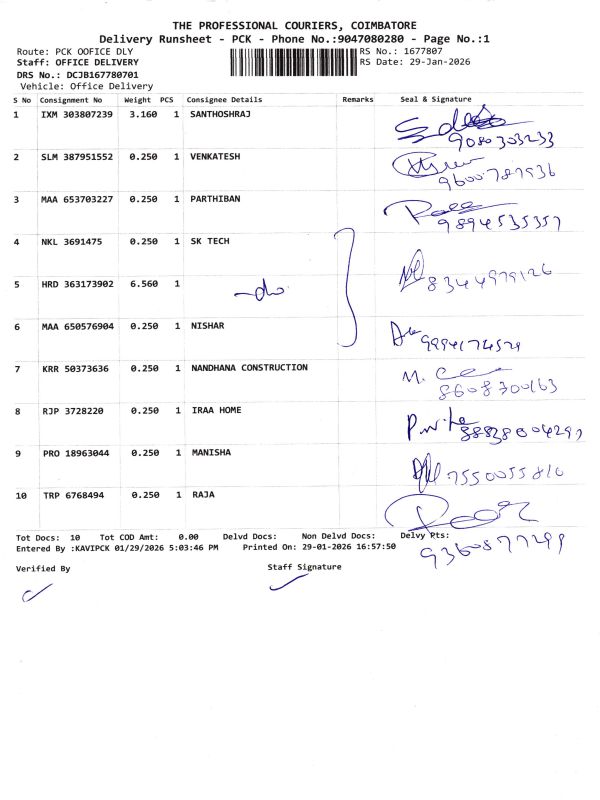 THE PROFESSIONAL COURIERS, COIMBATORE
Delivery Runsheet - PCK - Phone No.:9047080280 - Page No.:1
Route: PCK OOFICE DLY
RS No.: 1677807
Staff: OFFICE DELIVERY
RS Date: 29-Jan-2026
DRS No.: DCJB167780701
Vehicle: Office Delivery
S No Consignment No Weight PCS Consignee Details Remarks Seal & Signature
1 IXM 303807239 3.160 1 SANTHOSHRAJ
9080303233
2 SLM 387951552 0.250 1 VENKATESH
9600787936
3 MAA 653703227 0.250 1 PARTHIBAN
9894535357
4 NKL 3691475 0.250 1 SK TECH
5 HRD 363173902 6.560 1 -do- 8344979126
6 MAA 650576904 0.250 1 NISHAR
9994174529
7 KRR 50373636 0.250 1 NANDHANA CONSTRUCTION
8608700163
8 RJP 3728220 0.250 1 IRAA HOME
9 PRO 18963044 0.250 1 MANISHA
7550055810
10 TRP 6768494 0.250 1 RAJA
Tot Docs: 10 Tot COD Amt: 0.00 Delvd Docs: Non Delvd Docs: Delvy Pts:
Entered By :KAVIPCK 01/29/2026 5:03:46 PM Printed On: 29-01-2026 16:57:50
9360877299
Verified By Staff Signature